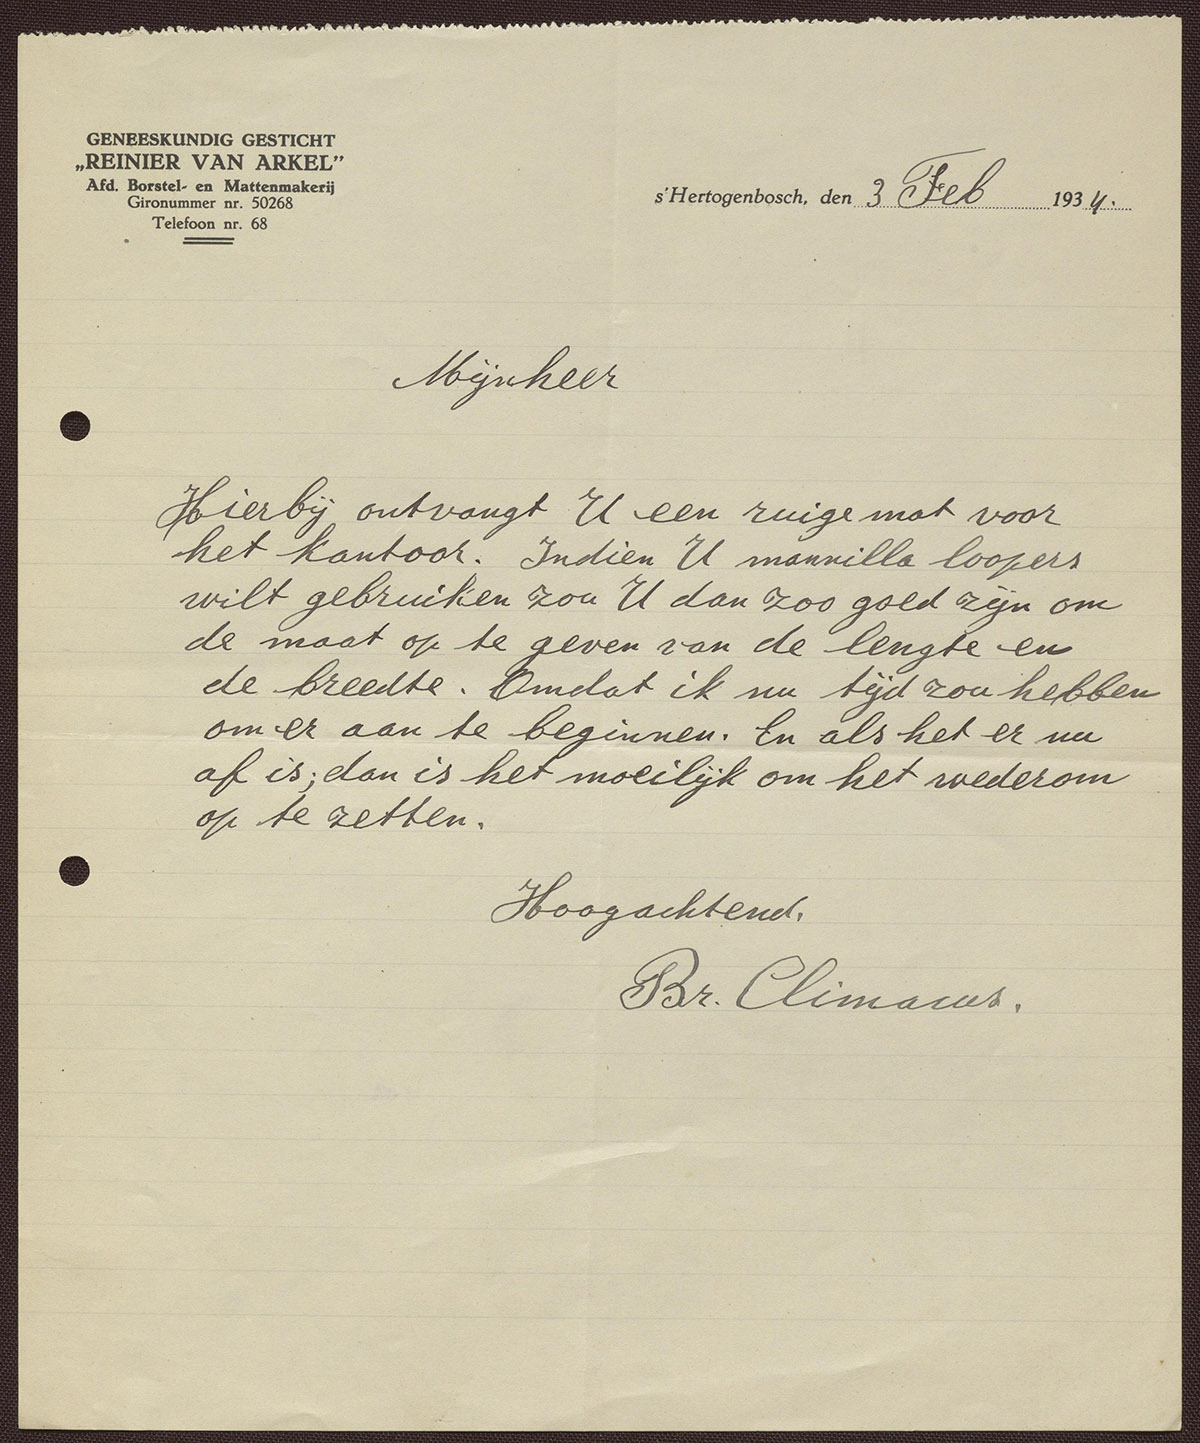 GENEESKUNDIG GESTICHT
„REINIER VAN ARKEL”
Afd. Borstel- en Mattenmakerij
Gironummer nr. 50268
Telefoon nr. 68
s'Hertogenbosch, den 3 Feb 1934.
Mijnheer
Hierbij ontvangt U een ruige mat voor
het kantoor. Indien U mannilla loopers
wilt gebruiken zou U dan zoo goed zijn om
de maat op te geven van de lengte en
de breedte. Omdat ik nu tijd zou hebben
om er aan te beginnen. En als het er nu
af is; dan is het moeilijk om het wederom
op te zetten.
Hoogachtend.
Br. Climacus.